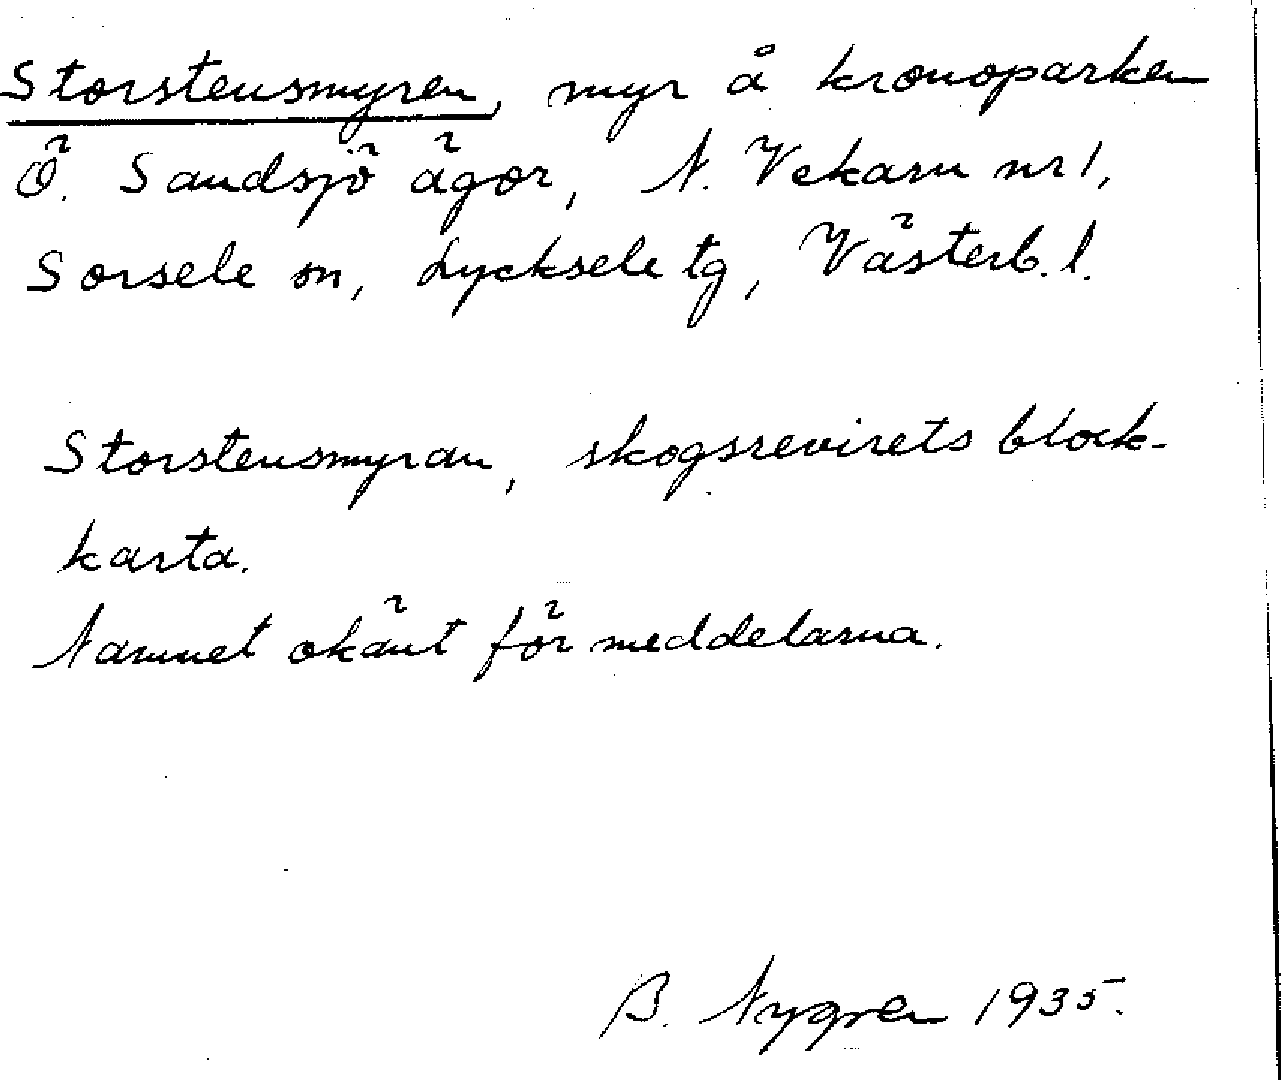 Storstensmyren, myr å kronoparken
Ö. Sandsjö ägor, N. Vekasu nr 1,
Sorsele sn, Lycksele tg, Västerb. l.
Storstensmyran, skogsrevirets block-
karta.
Namnet okänt för meddelarna.
B. Nygren 1935.